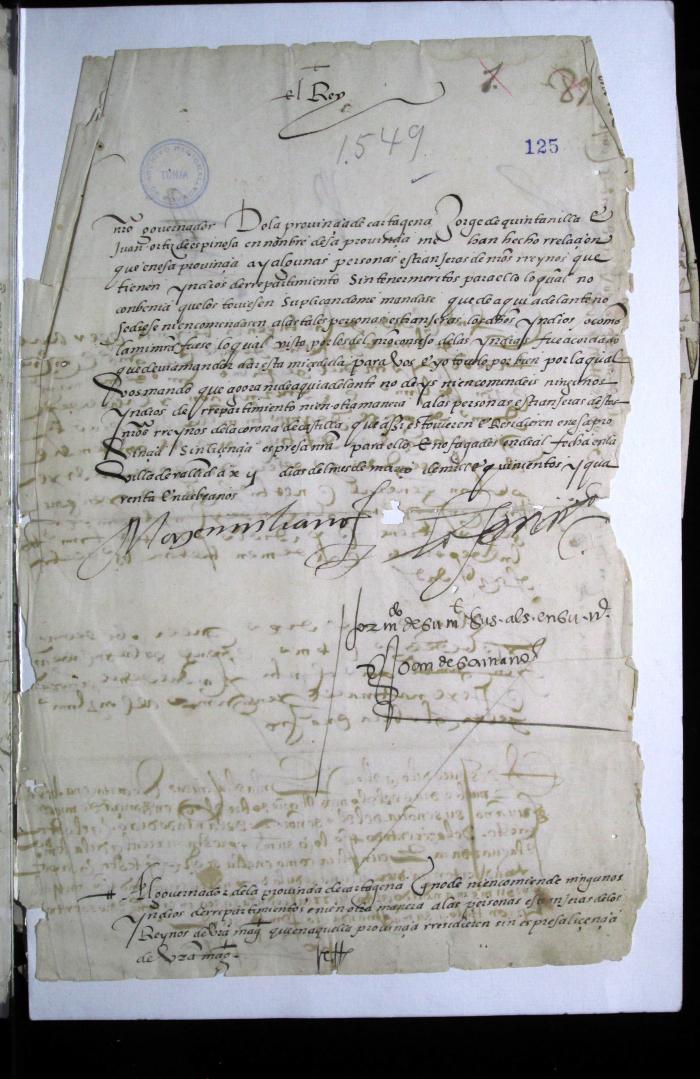 el Rey
1549
125
TUNJA
nro governador De la provinçia de cartagena Jorge de quintanilla E
Juan ortiz de espinosa en nonbre desa provinçia me han hecho rrelaçion
que enesa provinçia ay algunas personas estranjeras de nros rreynos que
tienen yndios de rrepartimiento sin tener meritos para ello lo qual no
conbenia que los toviesen suplicandome mandase que de aqui adelante no
se diese ni encomendasen alas tales personas estranjeras los dhos yndios o como
la mi mrd fuese lo qual visto por los del nro consejo delas yndias fue acordado
que devia mandar dar esta mi çedula para vos E yo tovelo por bien por la qual
vos mando que agora ni de aqui adelante no deys ni encomendeis ningunos
yndios de rrepartimiento ni en otra manera alas personas estranjeras destos
nros rreynos dela corona de castilla que assi estovieren E Residieren enesa pro
vinçia sin liçençia espresa mia para ello E no fagades ende al fecha enla
villa de vallid a x y dias del mes de março de mill E quinientos y qua
renta E nueve anos
Maximiliano la prinçesa
por mdo de su mt sus als. en su nr.
Joan de Samano
El governador dela provinçia de cartagena que no de ni encomiende ningunos
yndios de rrepartimientos ni en otra manera alas personas estranjeras delos
Reynos de vra mag que en aquella provinçia rresidieren sin espresa liçençia
de vra mag.